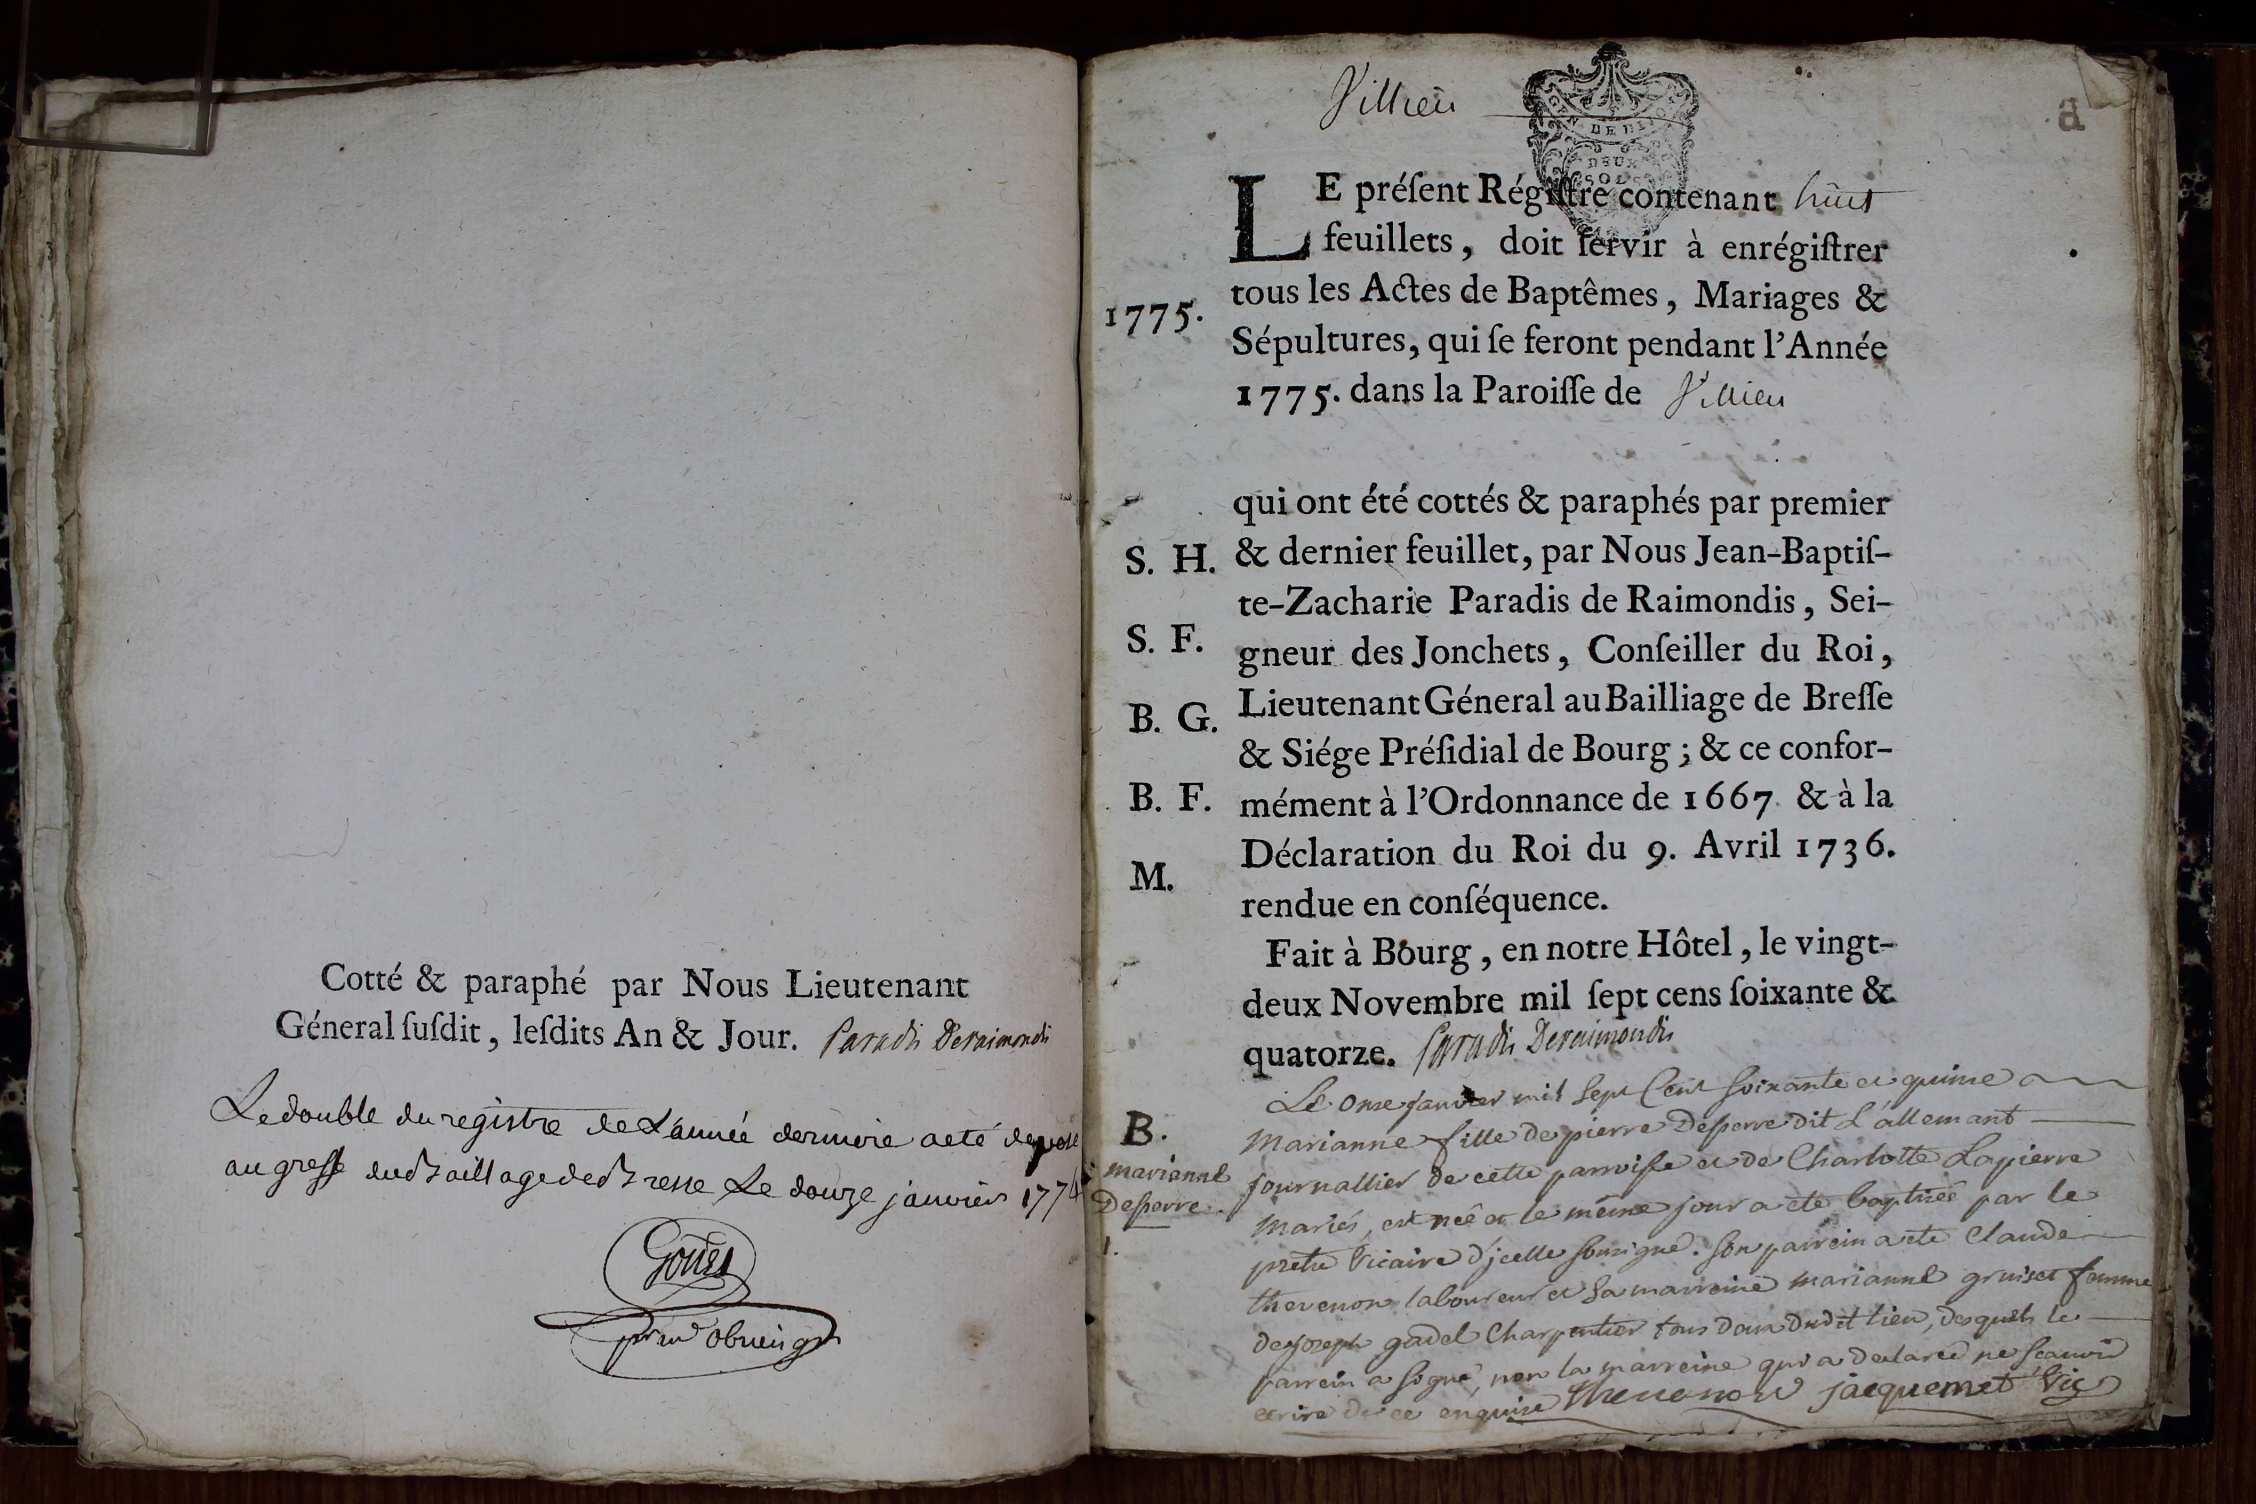 Cotté & paraphé par Nous Lieutenant
Géneral ſuſdit, leſdits An & Jour. Paradis Deraimondi
Le double du registre de L'année derniere a eté deposé
au greffe du Baillage de Bresse Le douze janvier 1774
Villieu
GEN. DE DIJON
DEUX
SOLS
a
LE préſent Régiſtre contenant huit
feuillets, doit ſervir à enrégiſtrer
tous les Actes de Baptêmes, Mariages &
1775.
Sépultures, qui ſe feront pendant l'Année
1775. dans la Paroiſſe de Villieu
qui ont été cottés & paraphés par premier
S. H. & dernier feuillet, par Nous Jean-Baptiſ-
te-Zacharie Paradis de Raimondis, Sei-
S. F. gneur des Jonchets, Conſeiller du Roi,
Lieutenant Géneral au Bailliage de Breſſe
B. G. & Siége Préſidial de Bourg ; & ce confor-
B. F. mément à l'Ordonnance de 1667 & à la
Déclaration du Roi du 9. Avril 1736.
M. rendue en conſéquence.
Fait à Bourg, en notre Hôtel, le vingt-
deux Novembre mil ſept cens ſoixante &
quatorze. Paradis Deraimondis
Le onze janvier mil Sept Cent Soixante et quinze
B. Marianne fille de pierre Desperre dit L'allemant
marianne journallier de cette parroisse et de Charlotte Lapierre
Desperre. Mariés, est née et le même jour a eté baptisée par le
1. pretre Vicaire d'jcelle soussigné. Son parrein a eté Claude
thevenon laboureur et Sa marreine marianne gruiset femme
de joseph gadel Charpentier tous deux dudit lieu, desquels le
parrein a Signé, non la marreine qui a declarée ne scavoir
ecrire de ce enquise Thevenon jacquemet Vic